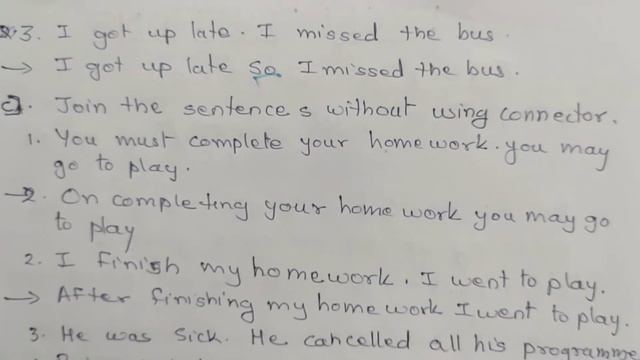 3. I got up late. I missed the bus.
→ I got up late so I missed the bus.
Q. Join the sentences without using connector.
1. You must complete your homework. you may
go to play.
→ On completing your home work you may go
to play
2. I finish my homework. I went to play.
→ After finishing my home work I went to play.
3. He was sick. He cancelled all his programme